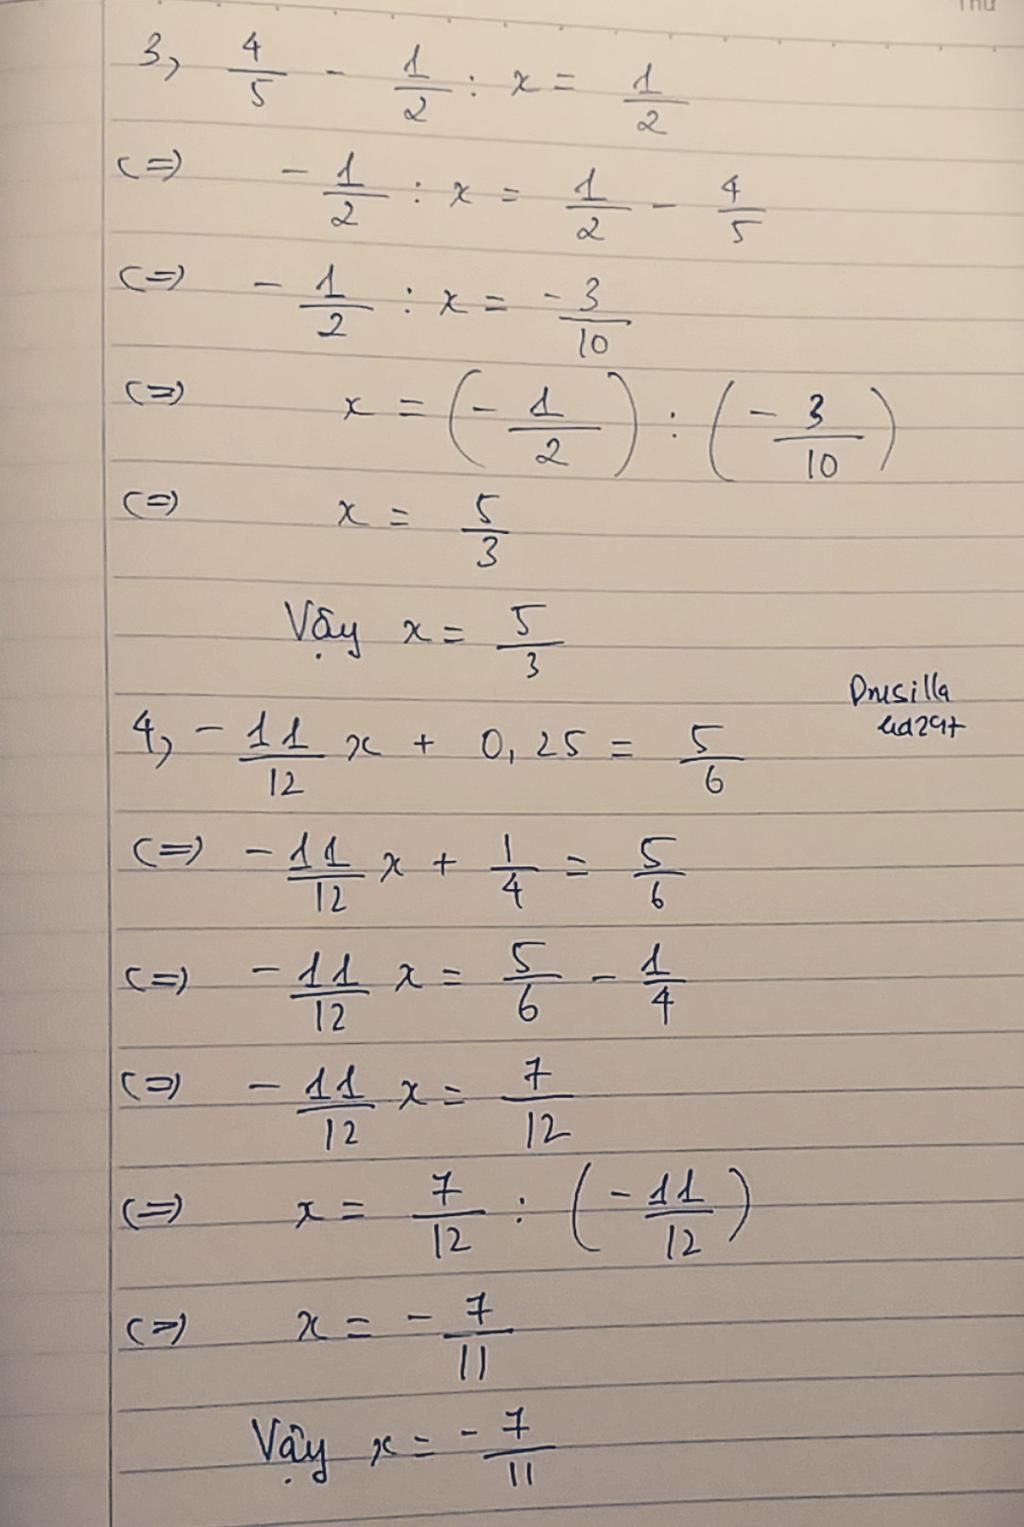 Thứ
3, 4/5 - 1/2 : x = 1/2
(=) - 1/2 : x = 1/2 - 4/5
(=) - 1/2 : x = - 3/10
(=) x = (- 1/2) : (- 3/10)
(=) x = 5/3
Vậy x = 5/3
Drusilla
4, - 11/12 x + 0,25 = 5/6
(=) - 11/12 x + 1/4 = 5/6
(=) - 11/12 x = 5/6 - 1/4
(=) - 11/12 x = 7/12
(=) x = 7/12 : (- 11/12)
(=) x = - 7/11
Vậy x = - 7/11